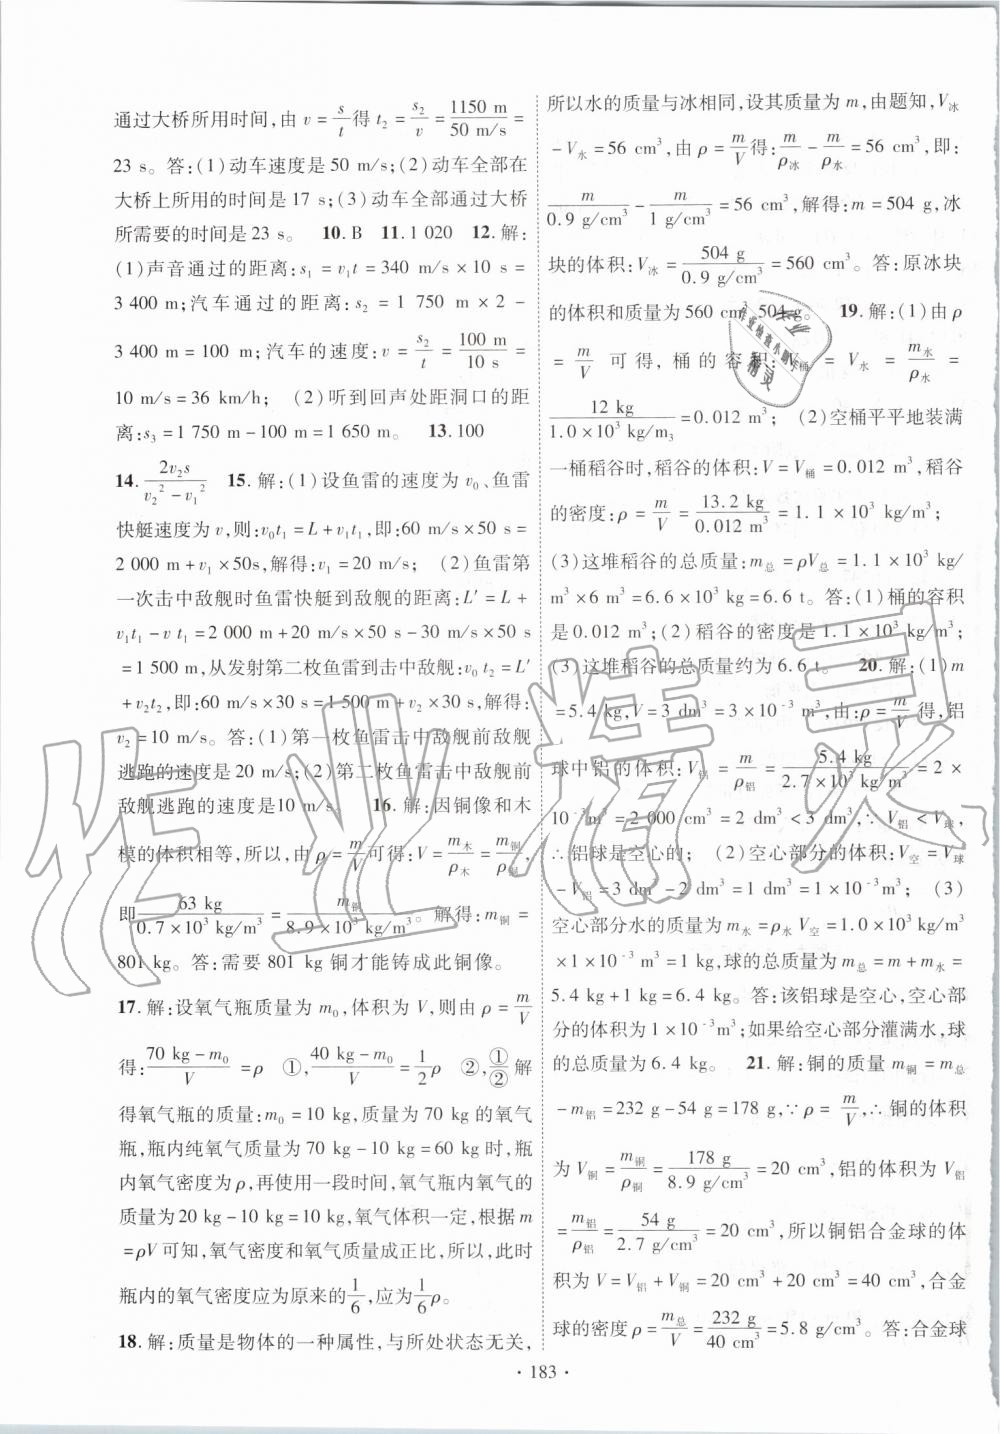 通过大桥所用时间,由 v=s/t 得 t₂=s₂/v=1150 m/50 m/s=
23 s。答:(1)动车速度是 50 m/s;(2)动车全部在
大桥上所用的时间是 17 s;(3)动车全部通过大桥
所需要的时间是 23 s。 10.B 11.1 020 12.解:
(1)声音通过的距离:s₁=v₁t=340 m/s×10 s=
3 400 m;汽车通过的距离:s₂=1 750 m×2-
3 400 m=100 m;汽车的速度:v=s₂/t=100 m/10 s=
10 m/s=36 km/h; (2)听到回声处距洞口的距
离:s₃=1 750 m-100 m=1 650 m。 13.100
14.2v₂s/(v₂²-v₁²) 15.解:(1)设鱼雷的速度为 v₀、鱼雷
快艇速度为 v,则:v₀t₁=L+v₁t₁,即:60 m/s×50 s=
2 000 m+v₁×50s,解得:v₁=20 m/s; (2)鱼雷第
一次击中敌舰时鱼雷快艇到敌舰的距离:L′=L+
v₁t₁-v t₁=2 000 m+20 m/s×50 s-30 m/s×50 s
=1 500 m,从发射第二枚鱼雷到击中敌舰:v₀t₂=L′
+v₂t₂,即:60 m/s×50 s=1 500 m+v₂×50 s,解得:
v₂=10 m/s。答:(1)第一枚鱼雷击中敌舰前敌舰
逃跑的速度是 20 m/s;(2)第二枚鱼雷击中敌舰前
敌舰逃跑的速度是10 m/s。 16.解:因铜像和木
模的体积相等,所以,由 ρ=m/V 可得:V=m木/ρ木=m铜/ρ铜,
即 63 kg/0.7×10³ kg/m³=m铜/8.9×10³ kg/m³。解得:m铜=
801 kg。答:需要 801 kg 铜才能铸成此铜像。
17.解:设氧气瓶质量为 m₀,体积为 V,则由 ρ=m/V
得:(70 kg-m₀)/V=ρ ①,(40 kg-m₀)/V=1/2ρ ②,①/②解
得氧气瓶的质量:m₀=10 kg,质量为 70 kg 的氧气
瓶,瓶内纯氧气质量为 70 kg-10 kg=60 kg 时,瓶
内氧气密度为 ρ,使用一段时间,氧气瓶内氧气的
质量为 20 kg-10 kg=10 kg,氧气体积一定,根据 m
=ρV 可知,氧气密度和氧气质量成正比,所以,此时
瓶内的氧气密度应为原来的1/6,应为1/6ρ。
18.解:质量是物体的一种属性,与所处状态无关,
所以水的质量与冰相同,设其质量为 m,由题知,V冰
-V水=56 cm³,由 ρ=m/V得:m/ρ冰-m/ρ水=56 cm³,即:
m/0.9 g/cm³-m/1 g/cm³=56 cm³,解得:m=504 g,冰
块的体积:V冰=504 g/0.9 g/cm³=560 cm³。答:原冰块
的体积和质量为 560 cm³ 504 g。 19.解:(1)由 ρ
=m/V 可得,桶的容积:V桶=V水=m水/ρ水=
12 kg/1.0×10³ kg/m₃=0.012 m³; (2)空桶平平地装满
一桶稻谷时,稻谷的体积:V=V桶=0.012 m³,稻谷
的密度:ρ=m/V=13.2 kg/0.012 m³=1.1×10³ kg/m³;
(3)这堆稻谷的总质量:m总=ρV总=1.1×10³ kg/
m³×6 m³=6.6×10³ kg=6.6 t。答:(1)桶的容积
是 0.012 m³;(2)稻谷的密度是 1.1×10³ kg/m³;
(3)这堆稻谷的总质量约为 6.6 t。 20.解:(1)m
=5.4 kg,V=3 dm³=3×10⁻³ m³,由:ρ=m/V得,铝
球中铝的体积:V铝=m/ρ铝=5.4 kg/2.7×10³ kg/m³=2×
10⁻³m³=2 000 cm³=2 dm³<3 dm³,∵V铝<V球,
∴铝球是空心的; (2)空心部分的体积:V空=V球
-V铝=3 dm³-2 dm³=1 dm³=1×10⁻³ m³; (3)
空心部分水的质量为 m水=ρ水V空=1.0×10³ kg/m³
×1×10⁻³ m³=1 kg,球的总质量为 m总=m+m水=
5.4 kg+1 kg=6.4 kg。答:该铝球是空心,空心部
分的体积为 1×10⁻³m³;如果给空心部分灌满水,球
的总质量为 6.4 kg。 21.解:铜的质量 m铜=m总
-m铝=232 g-54 g=178 g,∵ρ=m/V,∴铜的体积
为 V铜=m铜/ρ铜=178 g/8.9 g/cm³=20 cm³,铝的体积为 V铝
=m铝/ρ铝=54 g/2.7 g/cm³=20 cm³,所以铜铝合金球的体
积为 V=V铝+V铜=20 cm³+20 cm³=40 cm³,合金
球的密度 ρ=m总/V=232 g/40 cm³=5.8 g/cm³。答:合金球
·183·
作业精灵